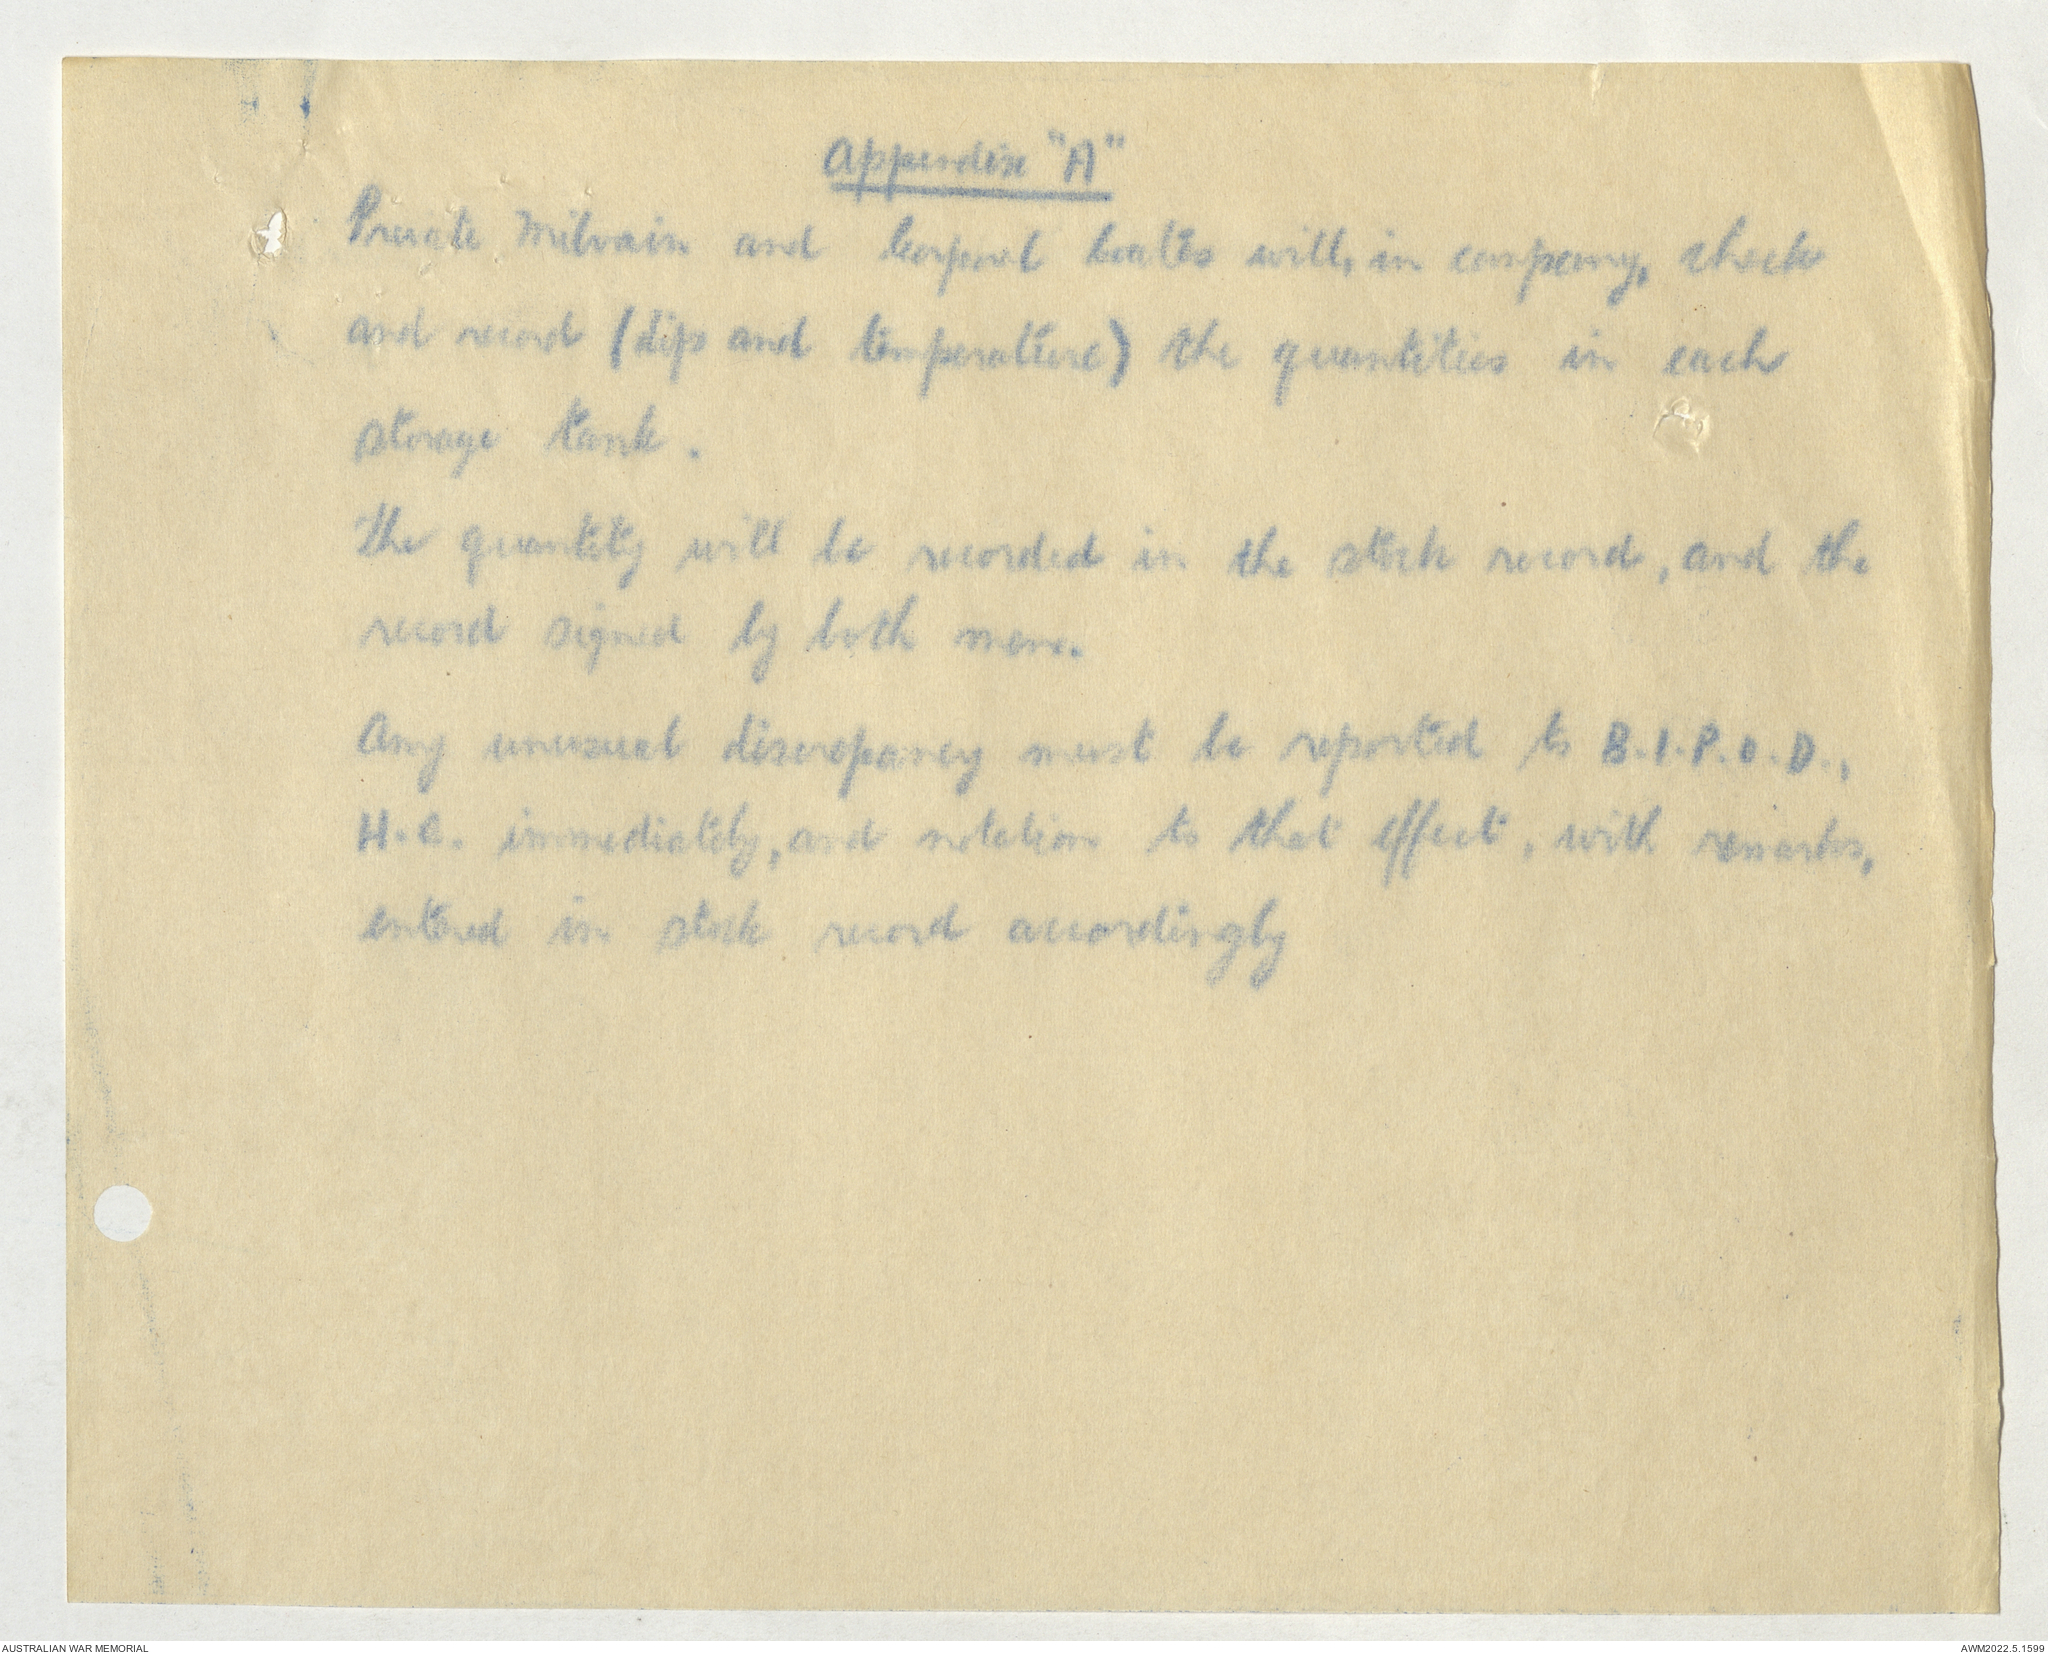 Appendix "A"
Private Milvain and Corporal Coates will, in company, check
and record (dips and temperature) the quantities in each
storage tank.
The quantity will be recorded in the stock record, and the
record signed by both men.
Any unusual discrepancy must be reported to B.I.P.O.D.,
H.Q. immediately, and notation to that effect, with remarks,
entered in stock record accordingly
AUSTRALIAN WAR MEMORIAL
AWM2022.5.1599